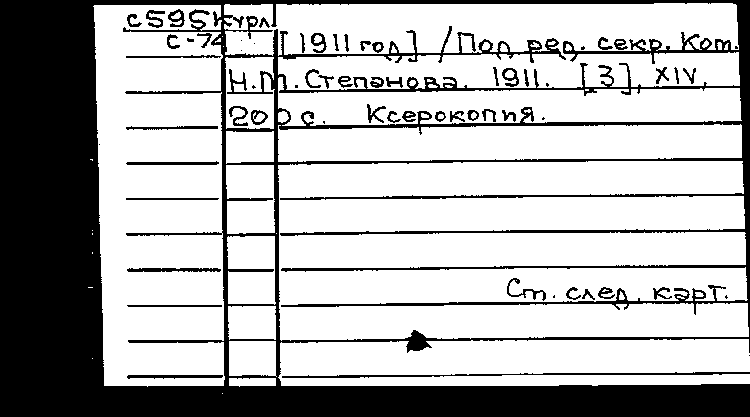 с595курл.
с-74 [1911 год] / Под ред. секр. Ком.
Н.М. Степанова. 1911. [3], XIV,
200 с. Ксерокопия.
См. след. карт.